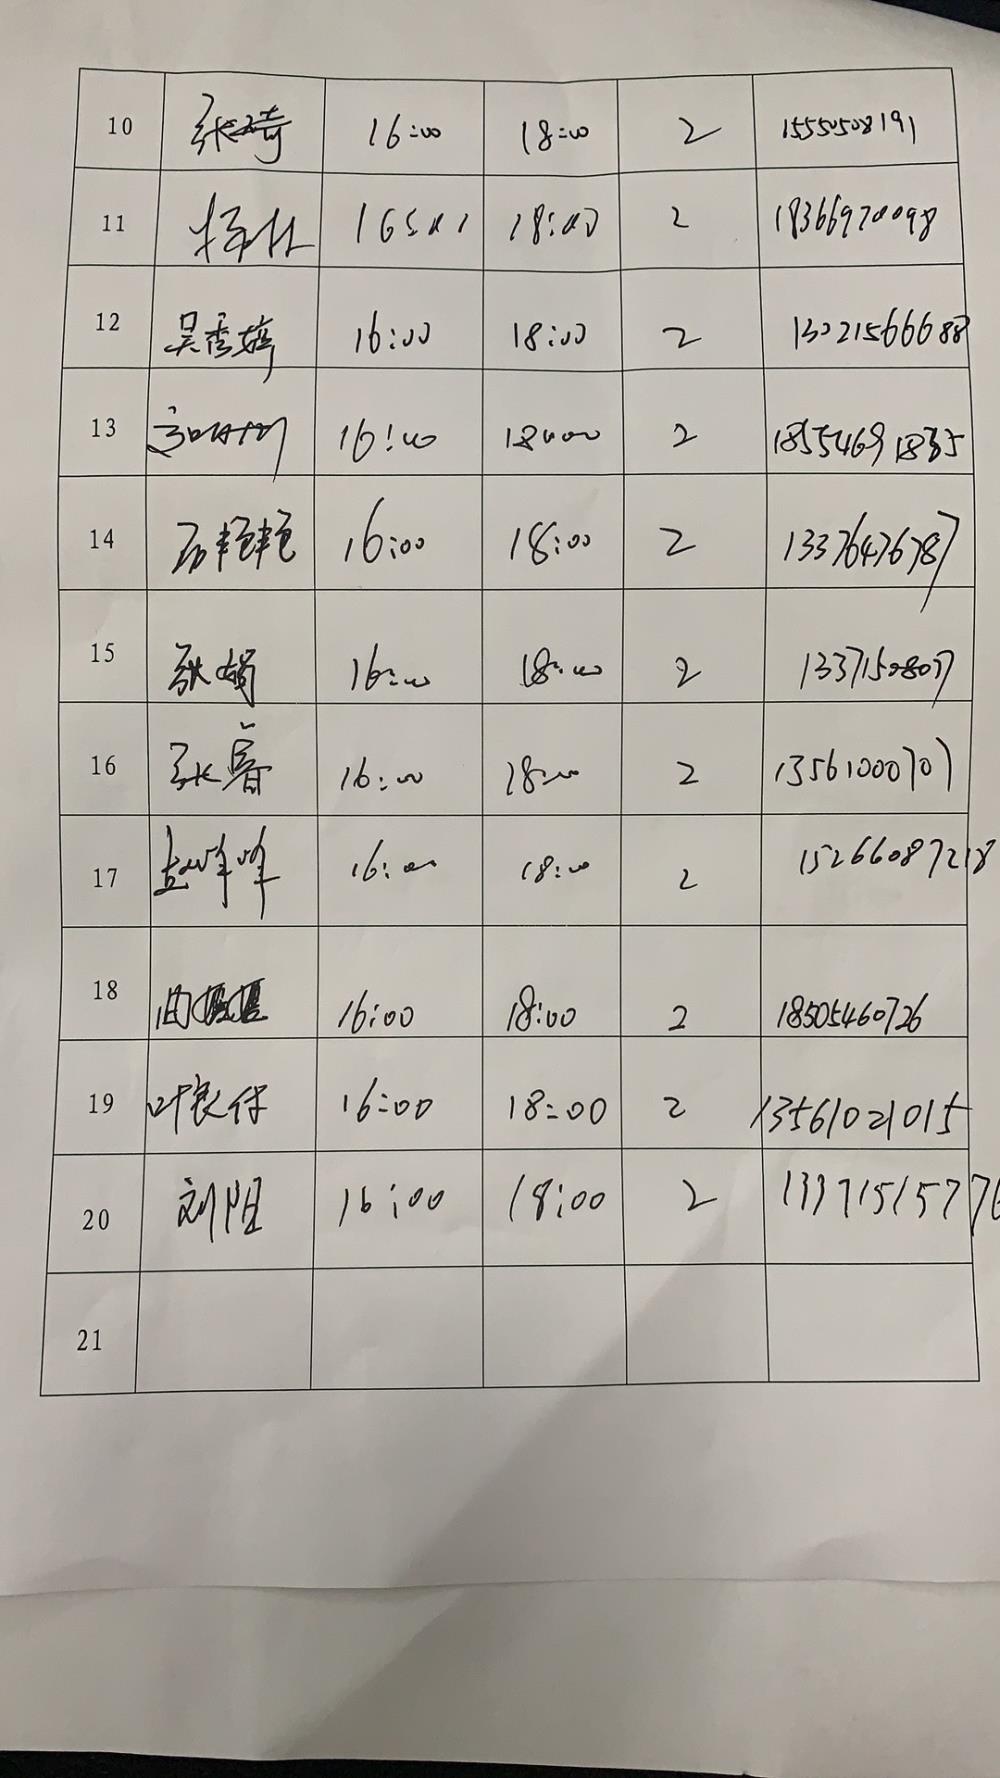 10 张琦 16:00 18:00 2 15550508191
11 16:00 18:00 2 18366970098
12 吴秀婷 16:00 18:00 2 13021566688
13 16:00 18:00 2 18554691835
14 艳艳 16:00 18:00 2 13376476787
15 张娟 16:00 18:00 2 13371508077
16 张睿 16:00 18:00 2 13561000707
17 孟峰峰 16:00 18:00 2 15266087218
18 曲 16:00 18:00 2 18505460726
19 叶良保 16:00 18:00 2 13561021015
20 刘阳 16:00 18:00 2 13371515776
21